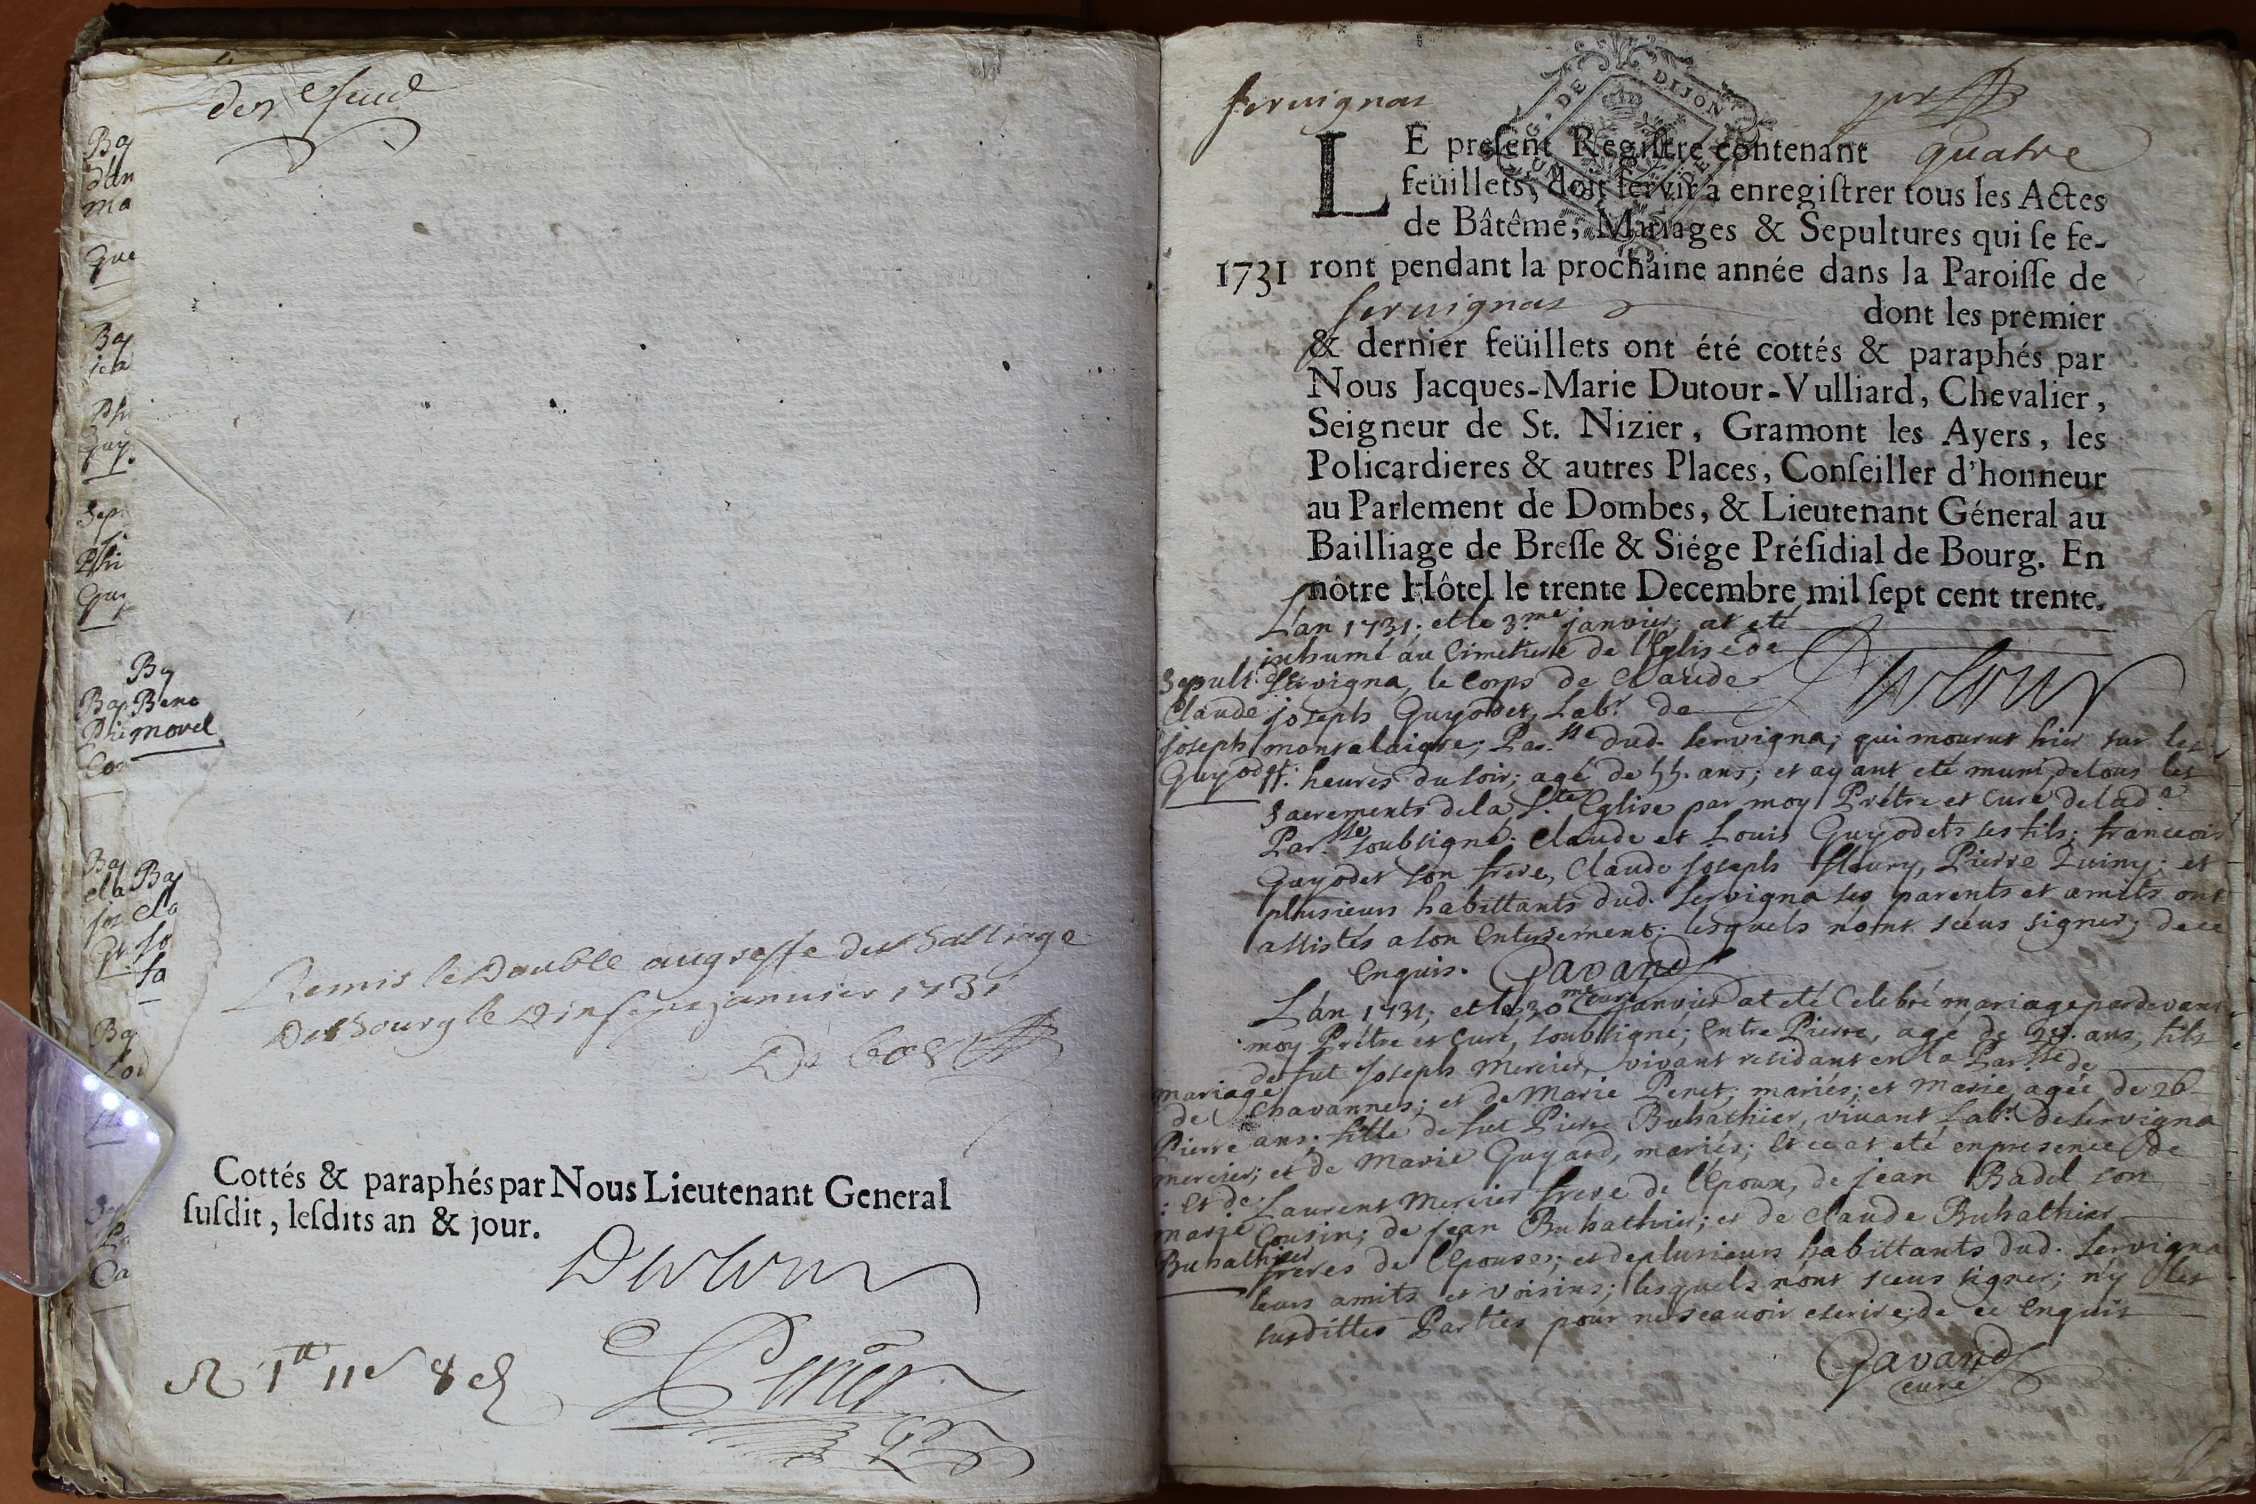 der
Remis le double au greffe du bailliage
de bourg le janvier 1731
Cottés & paraphés par Nous Lieutenant General
susdit, lesdits an & jour.
Dutour
Perier
servignas
DE DIJON
LE present Registre contenant quatre
feüillets, doit servir a enregistrer tous les Actes
de Bâtême, Mariages & Sepultures qui se fe-
1731 ront pendant la prochaine année dans la Paroisse de
servignas dont les premier
& dernier feüillets ont été cottés & paraphés par
Nous Jacques-Marie Dutour-Vulliard, Chevalier,
Seigneur de St. Nizier, Gramont les Ayers, les
Policardieres & autres Places, Conseiller d'honneur
au Parlement de Dombes, & Lieutenant Géneral au
Bailliage de Bresse & Siége Présidial de Bourg. En
nôtre Hôtel le trente Decembre mil sept cent trente.
Dutour
Sepult: de
Claude
Joseph
Guyodet
L'an 1731; et le 3.me janvier, at eté
inhumé au Cimetiere de l'Eglise de
Servigna, le Corps de Claude
Joseph Guyodet, Lab.r de
montalaigre; Par.sse dud. Servigna; qui mourut hier sur les
11: heures du soir; agé de 55. ans; et ayant eté muni de tous les
Sacrements de la S.te Eglise par moy Prétre et Curé de lad.e
Par.sse soubsigné. Claude et Louis Guyodets ses fils; francois
Guyodet son frere, Claude Joseph fleury, Pierre Quiny; et
plusieurs habittants dud. Servigna ses parents et amits ont
assistés a son Enterement; lesquels n'ont sceus signer; de ce
Enquis. Gavand
curé
mariage
de
Pierre
mercier;
: et de
marie
Buhathier
L'an 1731; et le 30.me janvier at eté Celebré mariage pardevant
moy Prétre et Curé, soubsigné; Entre Pierre, agé de 28. ans, fils
de fut Joseph Mercier, vivant residant en la Par.sse de
Chavannes; et de Marie Penet, mariés; et Marie agée de 26
ans; fille de fut Pierre Buhathier, vivant Lab.r de Servigna
et de Marie Guyard, mariés; Et ce at eté en presence de
Laurent Mercier frere de l'Epoux, de Jean Badel son
Cousin; de Jean Buhathier; et de Claude Buhathier
freres de l'Epouse; et de plusieurs habittants dud. Servigna
leurs amits et voisins; lesquels n'ont sceus signer; n'y les
susdittes Parties pour ne scavoir escrire; de ce Enquis
Gavand
curé